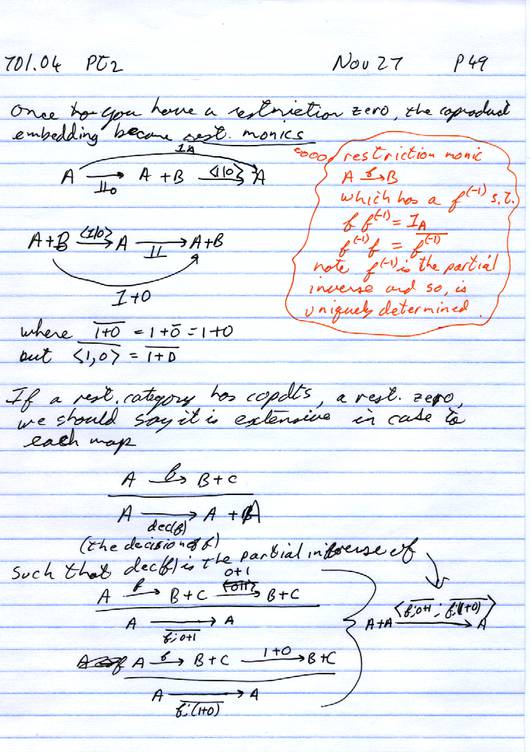 701.04 PT2 Nov 27 P49
Once you have a restriction zero, the coproduct
embedding become rest. monics
1A
A → A + B ⟨1|0⟩ → A
⊥⊥0
A+B ⟨1|0⟩ → A → A+B
⊥⊥
1+0
where \overline{1+0} = 1+\overline{0} = 1+0
but ⟨1,0⟩ = \overline{1+0}
restriction monic
A f→ B
which has a f^{(-1)} s.t.
f f^{(-1)} = I_A
f^{(-1)} f = \overline{f^{(-1)}}
note f^{(-1)} is the partial
inverse and so, is
uniquely determined
If a rest. category has copdts, a rest. zero,
we should say it is extensive in case to
each map
A f→ B + C
A → A + A
dec(f)
(the decision of f)
such that dec(f) is the partial inverse of
A f→ B+C 0+1→ B+C
A → A
\overline{f;0+1}
A f→ B+C 1+0→ B+C
A → A
\overline{f;(1+0)}
A+A ⟨\overline{f;0+1}; \overline{f;(1+0)}⟩ → A